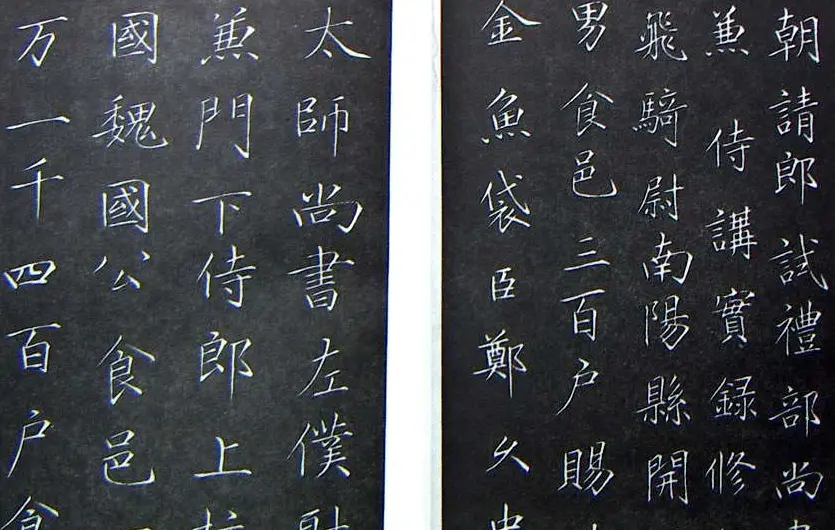 朝請郎試禮部尚
兼侍講實録修
飛騎尉南陽縣開
男食邑三百户賜
金魚袋臣鄭久
太師尚書左僕
兼門下侍郎上
國魏國公食邑
万一千四百户食